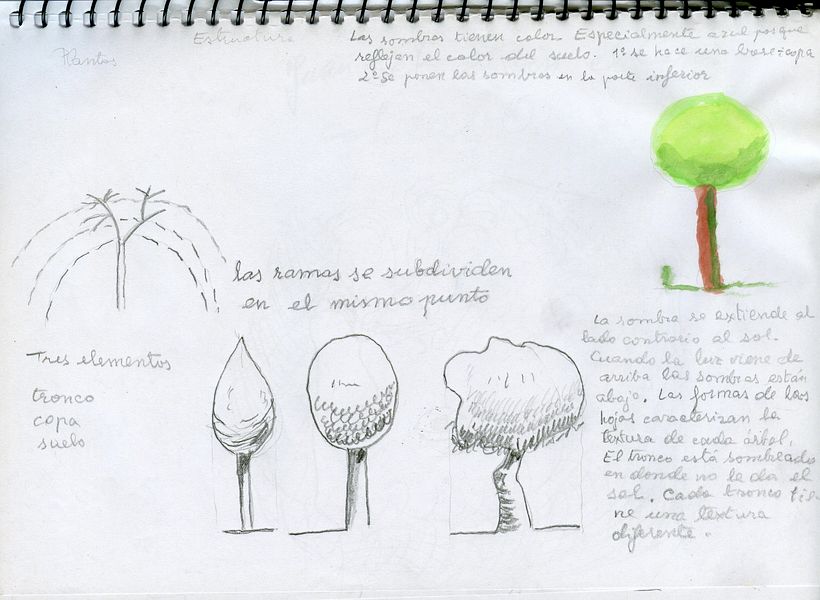 Estructura
Plantas
Las sombras tienen color. Especialmente azul porque
reflejan el color del suelo. 1º se hace una base: copa
2º Se ponen las sombras en la parte inferior
las ramas se subdividen
en el mismo punto
Tres elementos
tronco
copa
suelo
La sombra se extiende al
lado contrario al sol.
Cuando la luz viene de
arriba las sombras están
abajo. Las formas de las
hojas caracterizan la
textura de cada árbol.
El tronco está sombreado
en donde no le da el
sol. Cada tronco tie-
ne una textura
diferente.